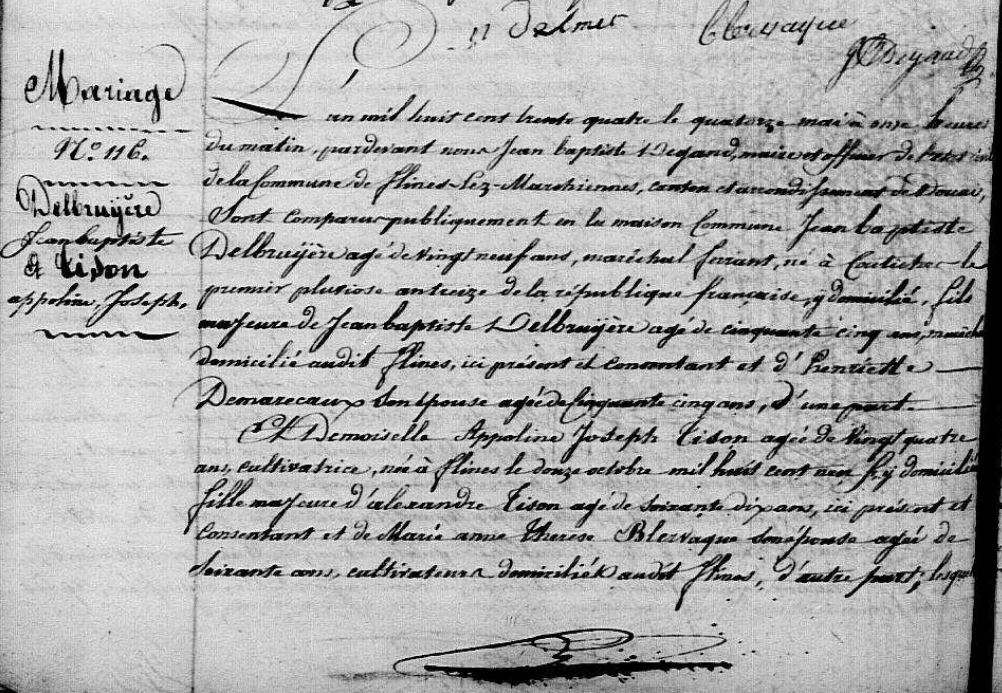 Delmer Blervaque
Mariage
N.º 116.
Delbruyère
Jean baptiste
& Tison
appoline, Joseph.
L'an mil huit cent trente quatre le quatorze mai à onze heures
du matin, pardevant nous Jean baptiste Degand, maire et officier de l'état civil
de la Commune de flines-Lez-Marchiennes, canton et arrondissement de Douai,
Sont comparus publiquement en la maison Commune Jean baptiste
Delbruyère agé de Vingt neuf ans, maréchal ferrant, né à Coutiches le
premier pluviose an treize de la république française, y domicilié, fils
majeure de Jean baptiste Delbruyère agé de cinquante cinq ans, maréchal
domicilié audit flines, ici présent et consentant et d'henriette
Demarecaux Son épouse agée de Cinquante cinq ans, d'une part.
Et Demoiselle Appoline Joseph Tison agée de Vingt quatre
ans, cultivatrice, née à flines le douze octobre mil huit cent neuf & y domiciliée
fille majeure d'alexandre Tison agé de soixante dix ans, ici présent et
Consentant et de Marie anne Therese Blervaque son épouse agée de
Soixante ans, cultivateurs domiciliés audit flines, d'autre part, lesquels